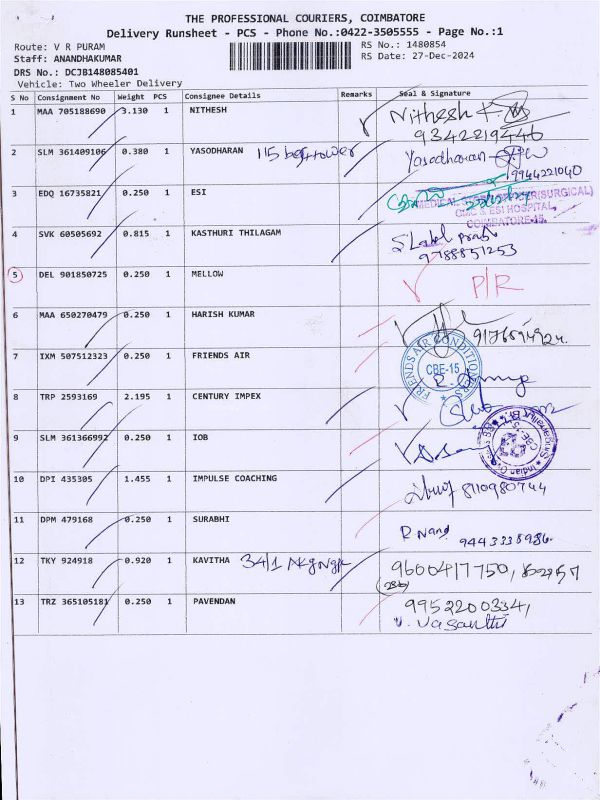 THE PROFESSIONAL COURIERS, COIMBATORE
Delivery Runsheet - PCS - Phone No.:0422-3505555 - Page No.:1
Route: V R PURAM
RS No.: 1480854
Staff: ANANDHAKUMAR
RS Date: 27-Dec-2024
DRS No.: DCJB148085401
Vehicle: Two Wheeler Delivery
S No Consignment No Weight PCS Consignee Details Remarks Seal & Signature
1 MAA 705188690 3.130 1 NITHESH Nithesh K
9342219446
2 SLM 361409106 0.380 1 YASODHARAN Yasodharan
9944221040
3 EDQ 16735821 0.250 1 ESI
(SURGICAL)
& ESI HOSPITAL
COIMBATORE-15.
4 SVK 60505692 0.815 1 KASTHURI THILAGAM
9788851253
5 DEL 901850725 0.250 1 MELLOW P/R
6 MAA 650270479 0.250 1 HARISH KUMAR
7 IXM 507512323 0.250 1 FRIENDS AIR FRIENDS AIR CONDITIONERS
CBE-15
8 TRP 2593169 2.195 1 CENTURY IMPEX
9 SLM 361366992 0.250 1 IOB
10 DPI 435305 1.455 1 IMPULSE COACHING 8110980744
11 DPM 479168 0.250 1 SURABHI R. Nand
9443338986
12 TKY 924918 0.920 1 KAVITHA 34/1 9600417750,
13 TRZ 365105181 0.250 1 PAVENDAN 9952200334,
V. Vasanthi